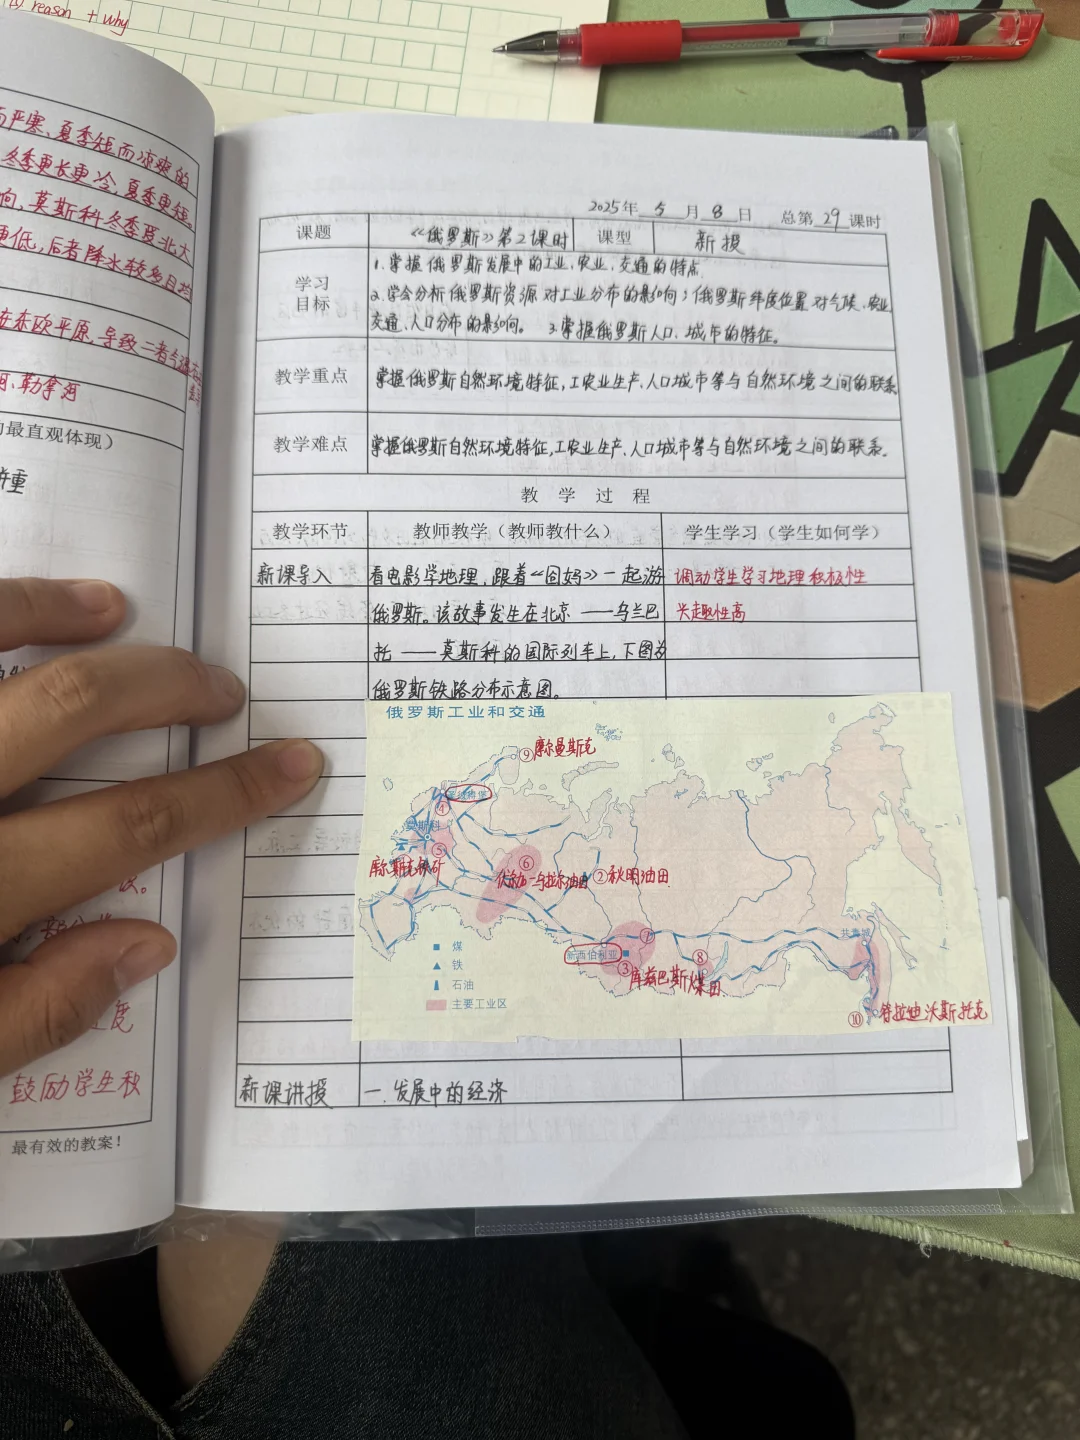 reason + why
而严寒、夏季短而凉爽的
冬季更长更冷,夏季更短
响,莫斯科冬季受北大
更低,后者降水较多且均
在东欧平原,导致二者气温
勒拿河
的最直观体现)
讲重
度
鼓励学生积
最有效的教案!
2025年 5 月 8 日 总第 29 课时
课题 《俄罗斯》第2课时 课型 新授
学习
目标
1.掌握俄罗斯发展中的工业、农业、交通的特点
2.学会分析俄罗斯资源对工业分布的影响;俄罗斯纬度位置对气候、农业
交通、人口分布的影响。 3.掌握俄罗斯人口、城市的特征。
教学重点 掌握俄罗斯自然环境特征,工农业生产、人口城市等与自然环境之间的联系
教学难点 掌握俄罗斯自然环境特征,工农业生产、人口城市等与自然环境之间的联系。
教 学 过 程
教学环节 教师教学(教师教什么) 学生学习(学生如何学)
新课导入 看电影学地理,跟着《囧妈》一起游 调动学生学习地理积极性
俄罗斯。该故事发生在北京——乌兰巴 兴趣性高
托——莫斯科的国际列车上,下图为
俄罗斯铁路分布示意图。
俄罗斯工业和交通
⑨摩尔曼斯克
圣彼得堡
④
莫斯科
⑤
⑥
库尔斯克铁矿
伏尔加—乌拉尔油田
②秋明油田
共青城
⑦
新西伯利亚
⑧
③库兹巴斯煤田
煤
铁
石油
主要工业区
⑩符拉迪沃斯托克
新课讲授 一.发展中的经济